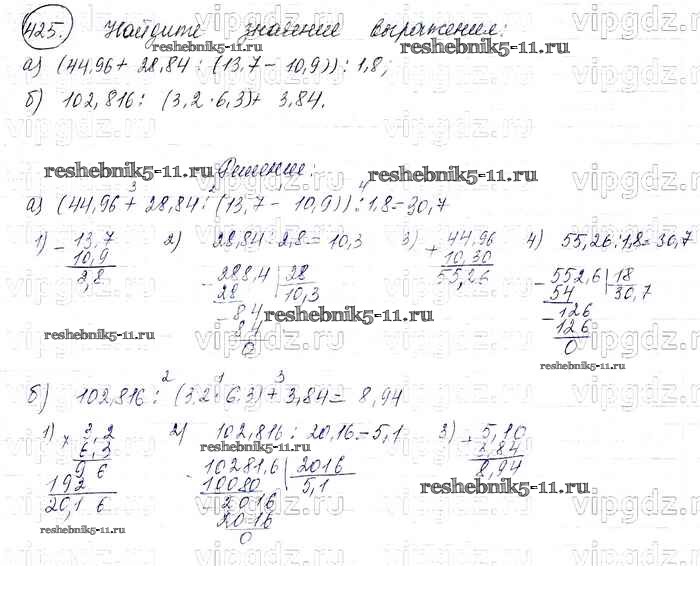 425. Найдите значение выражения:
а) (44,96 + 28,84 : (13,7 - 10,9)) : 1,8;
б) 102,816 : (3,2 · 6,3) + 3,84.
Решение:
а) (44,96 + 28,84 : (13,7 - 10,9)) : 1,8 = 30,7
3 2 1 4
1) 13,7 2) 28,84 : 2,8 = 10,3 3) 44,96 4) 55,26 : 1,8 = 30,7
- 10,9 + 10,30
2,8 55,26
- 288,4 28 - 552,6 18
28 10,3 54 30,7
- 84 - 126
84 126
0 0
б) 102,816 : (3,2 · 6,3) + 3,84 = 8,94
2 1 3
1) × 3,2 2) 102,816 : 20,16 = 5,1 3) + 5,10
6,3 3,84
96 8,94
192
20,16
- 10281,6 2016
10080 5,1
2016
2016
0
reshebnik5-11.ru
vipgdz.ru